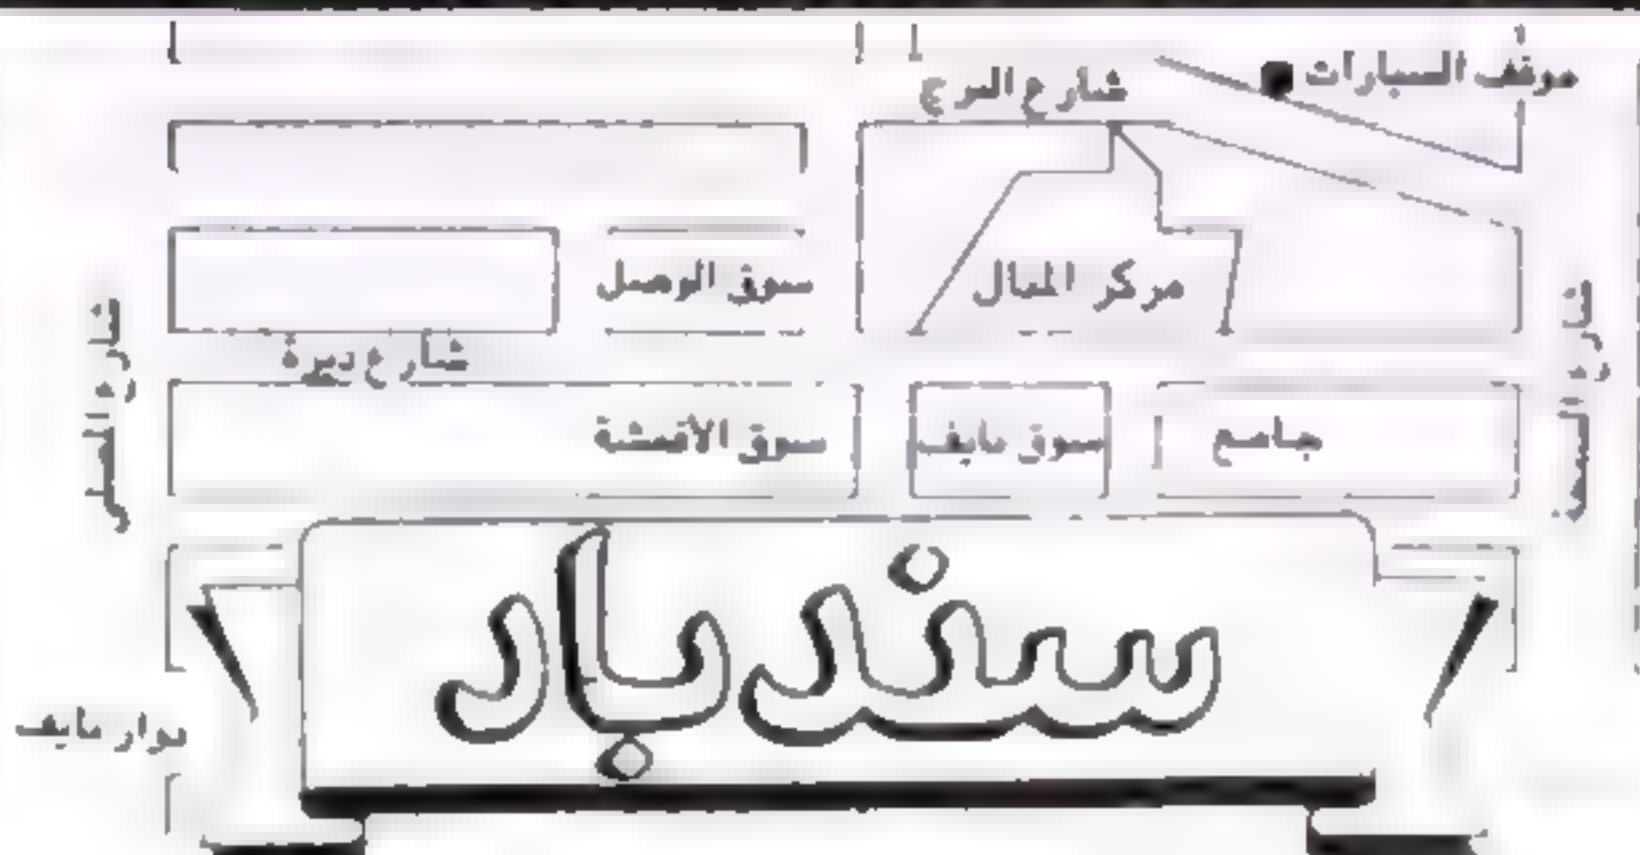 موقف السيارات
شارع البرج
سوق الوصل
مركز المنال
شارع ديرة
شارع
سوق الاقمشة
سوق نايف
جامع
سندباد
دوار نايف